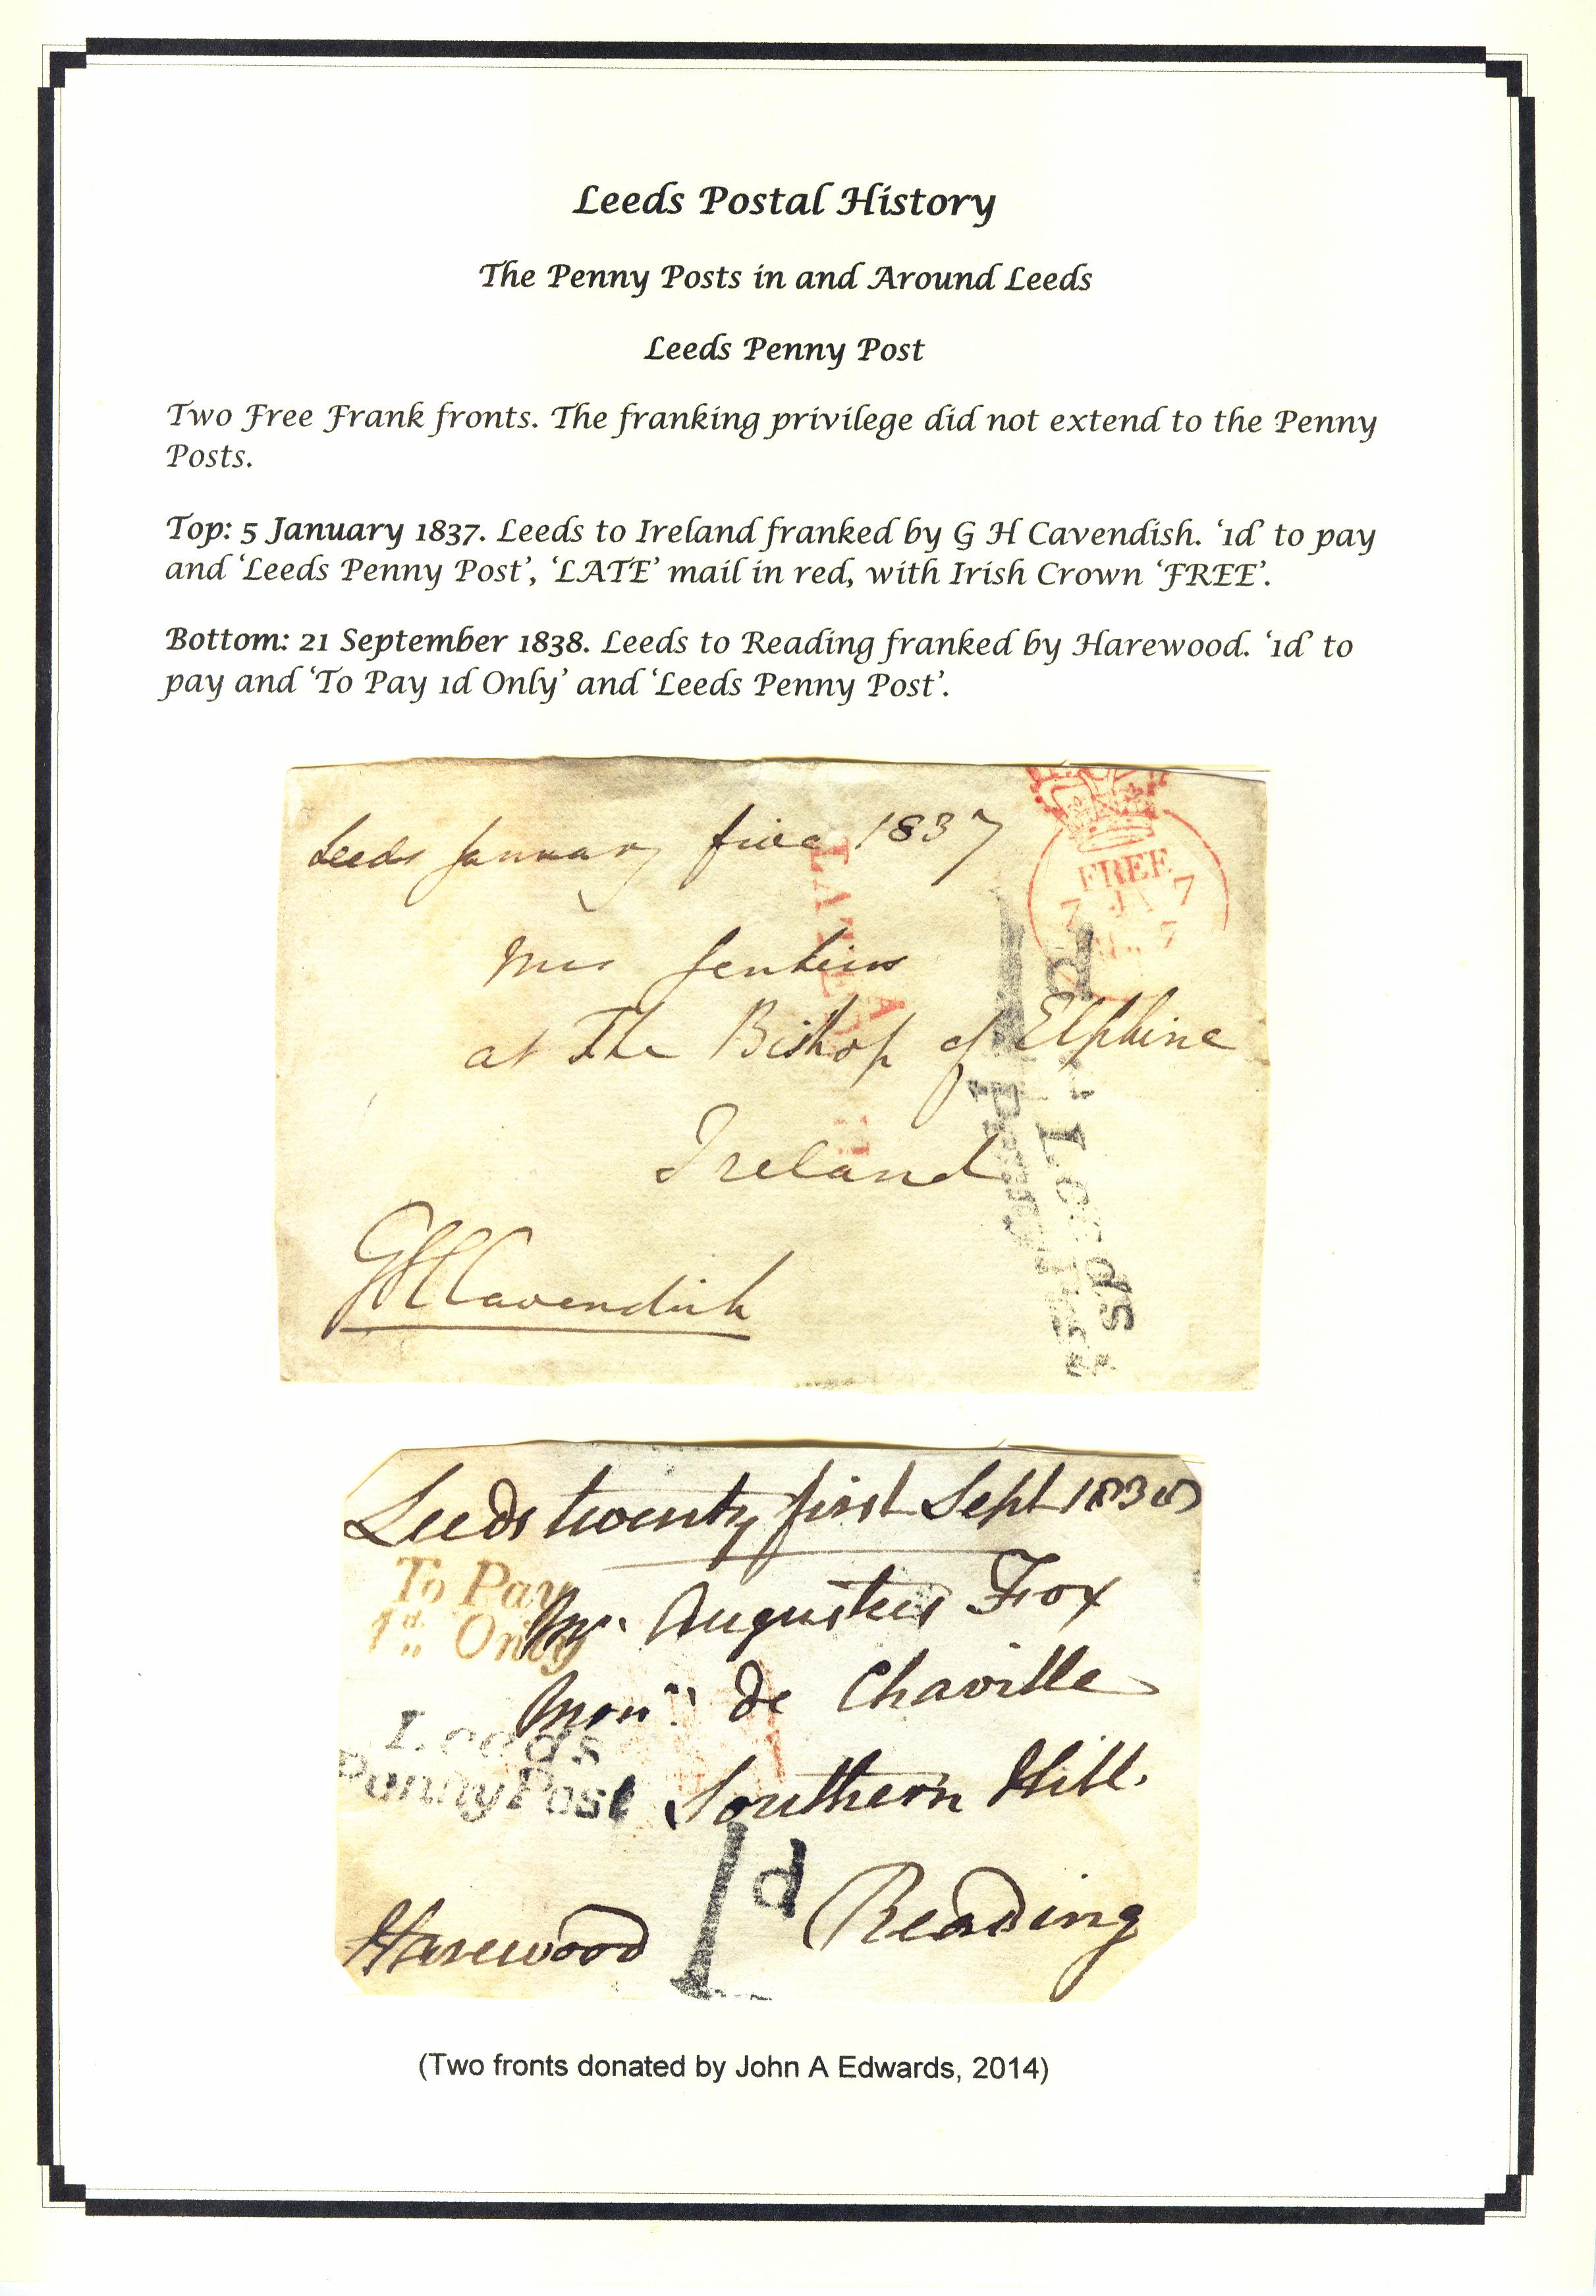 Leeds Postal History
The Penny Posts in and Around Leeds
Leeds Penny Post
Two Free Frank fronts. The franking privilege did not extend to the Penny
Posts.
Top: 5 January 1837. Leeds to Ireland franked by G H Cavendish. ‘1d’ to pay
and ‘Leeds Penny Post’, ‘LATE’ mail in red, with Irish Crown ‘FREE’.
Bottom: 21 September 1838. Leeds to Reading franked by Harewood. ‘1d’ to
pay and ‘To Pay 1d Only’ and ‘Leeds Penny Post’.
Leeds January five 1837
FREE
7 JA 7
LATE
d
at The Bishop of Elphine
Jenkins
Ireland
Leeds
Penny Post
GHCavendish
Leeds twenty first Sept 1838
To Pay
1d Only
Mr. Augustus Fox
de Chaville
Leeds
Penny Post
Southern Hill.
1d
Reading
Harewood
(Two fronts donated by John A Edwards, 2014)